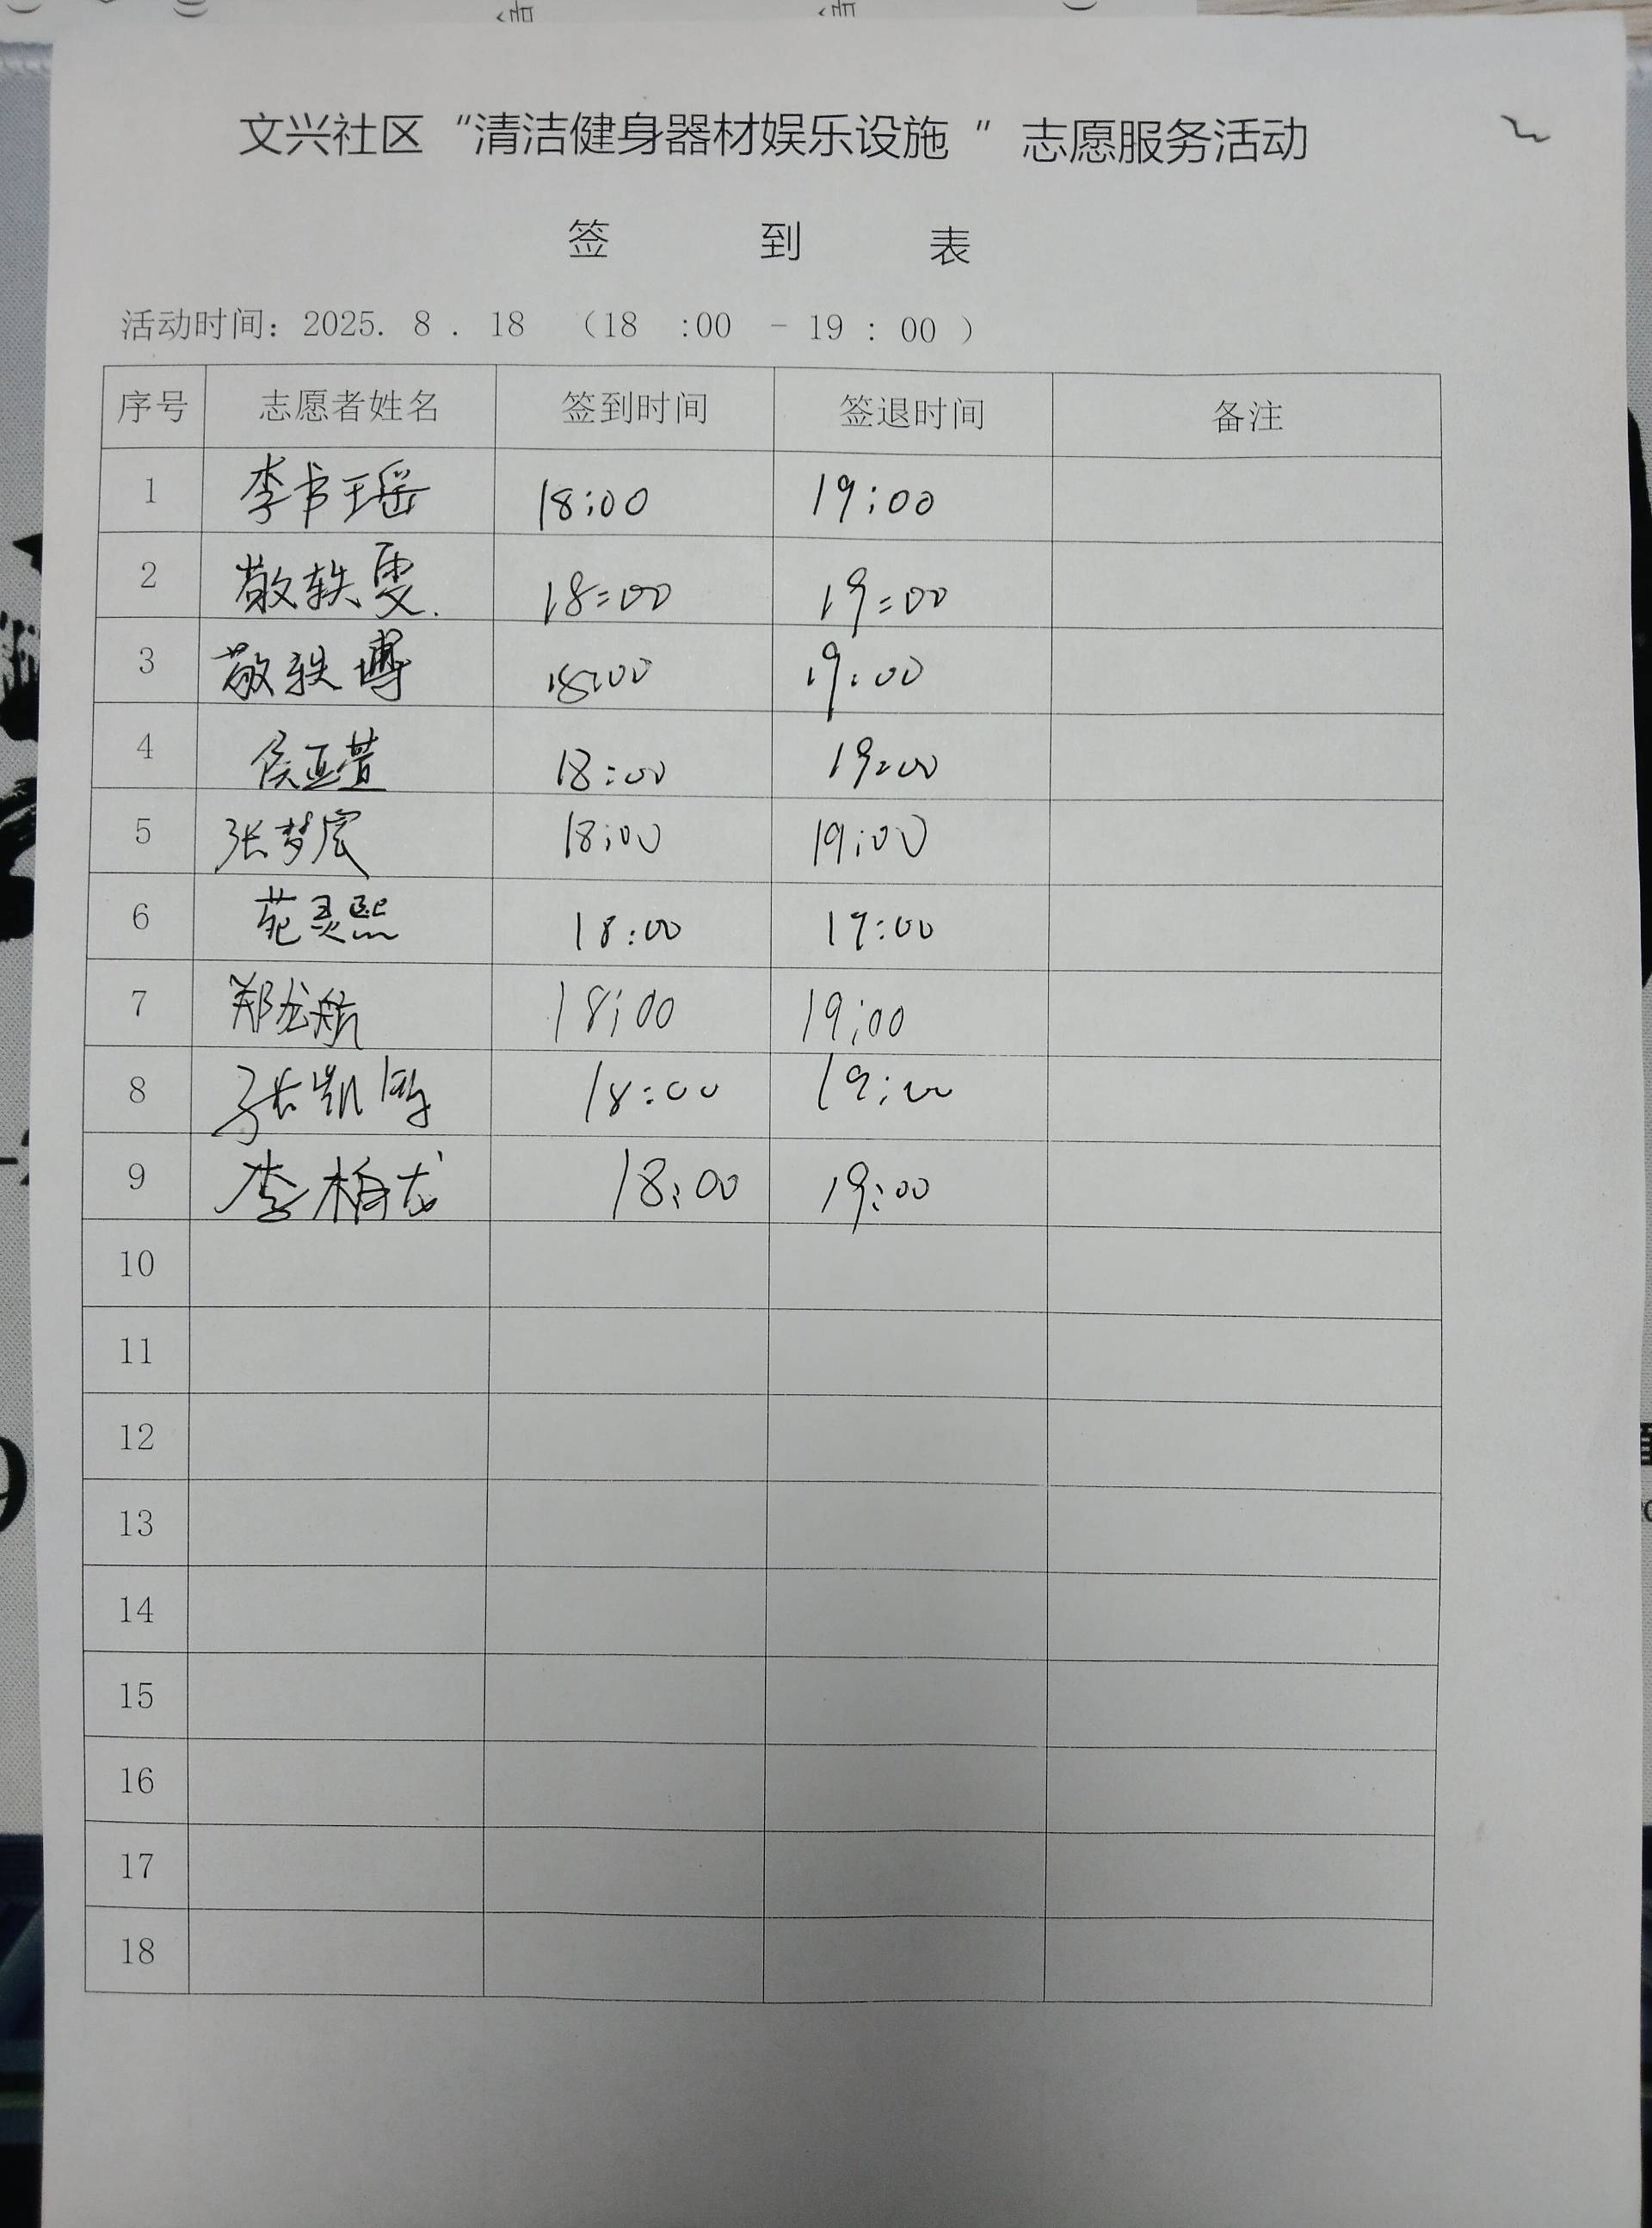 文兴社区“清洁健身器材娱乐设施 ”志愿服务活动
签 到 表
活动时间：2025. 8 . 18 （18 :00 - 19 : 00 ）
序号 志愿者姓名 签到时间 签退时间 备注
1 李书瑶 18:00 19:00
2 敬轶雯. 18:00 19:00
3 敬轶博 18:00 19:00
4 侯亚萱 18:00 19:00
5 张梦宸 18:00 19:00
6 苑灵熙 18:00 19:00
7 郑龙航 18:00 19:00
8 张凯 18:00 19:00
9 李柏龙 18:00 19:00
10
11
12
13
14
15
16
17
18